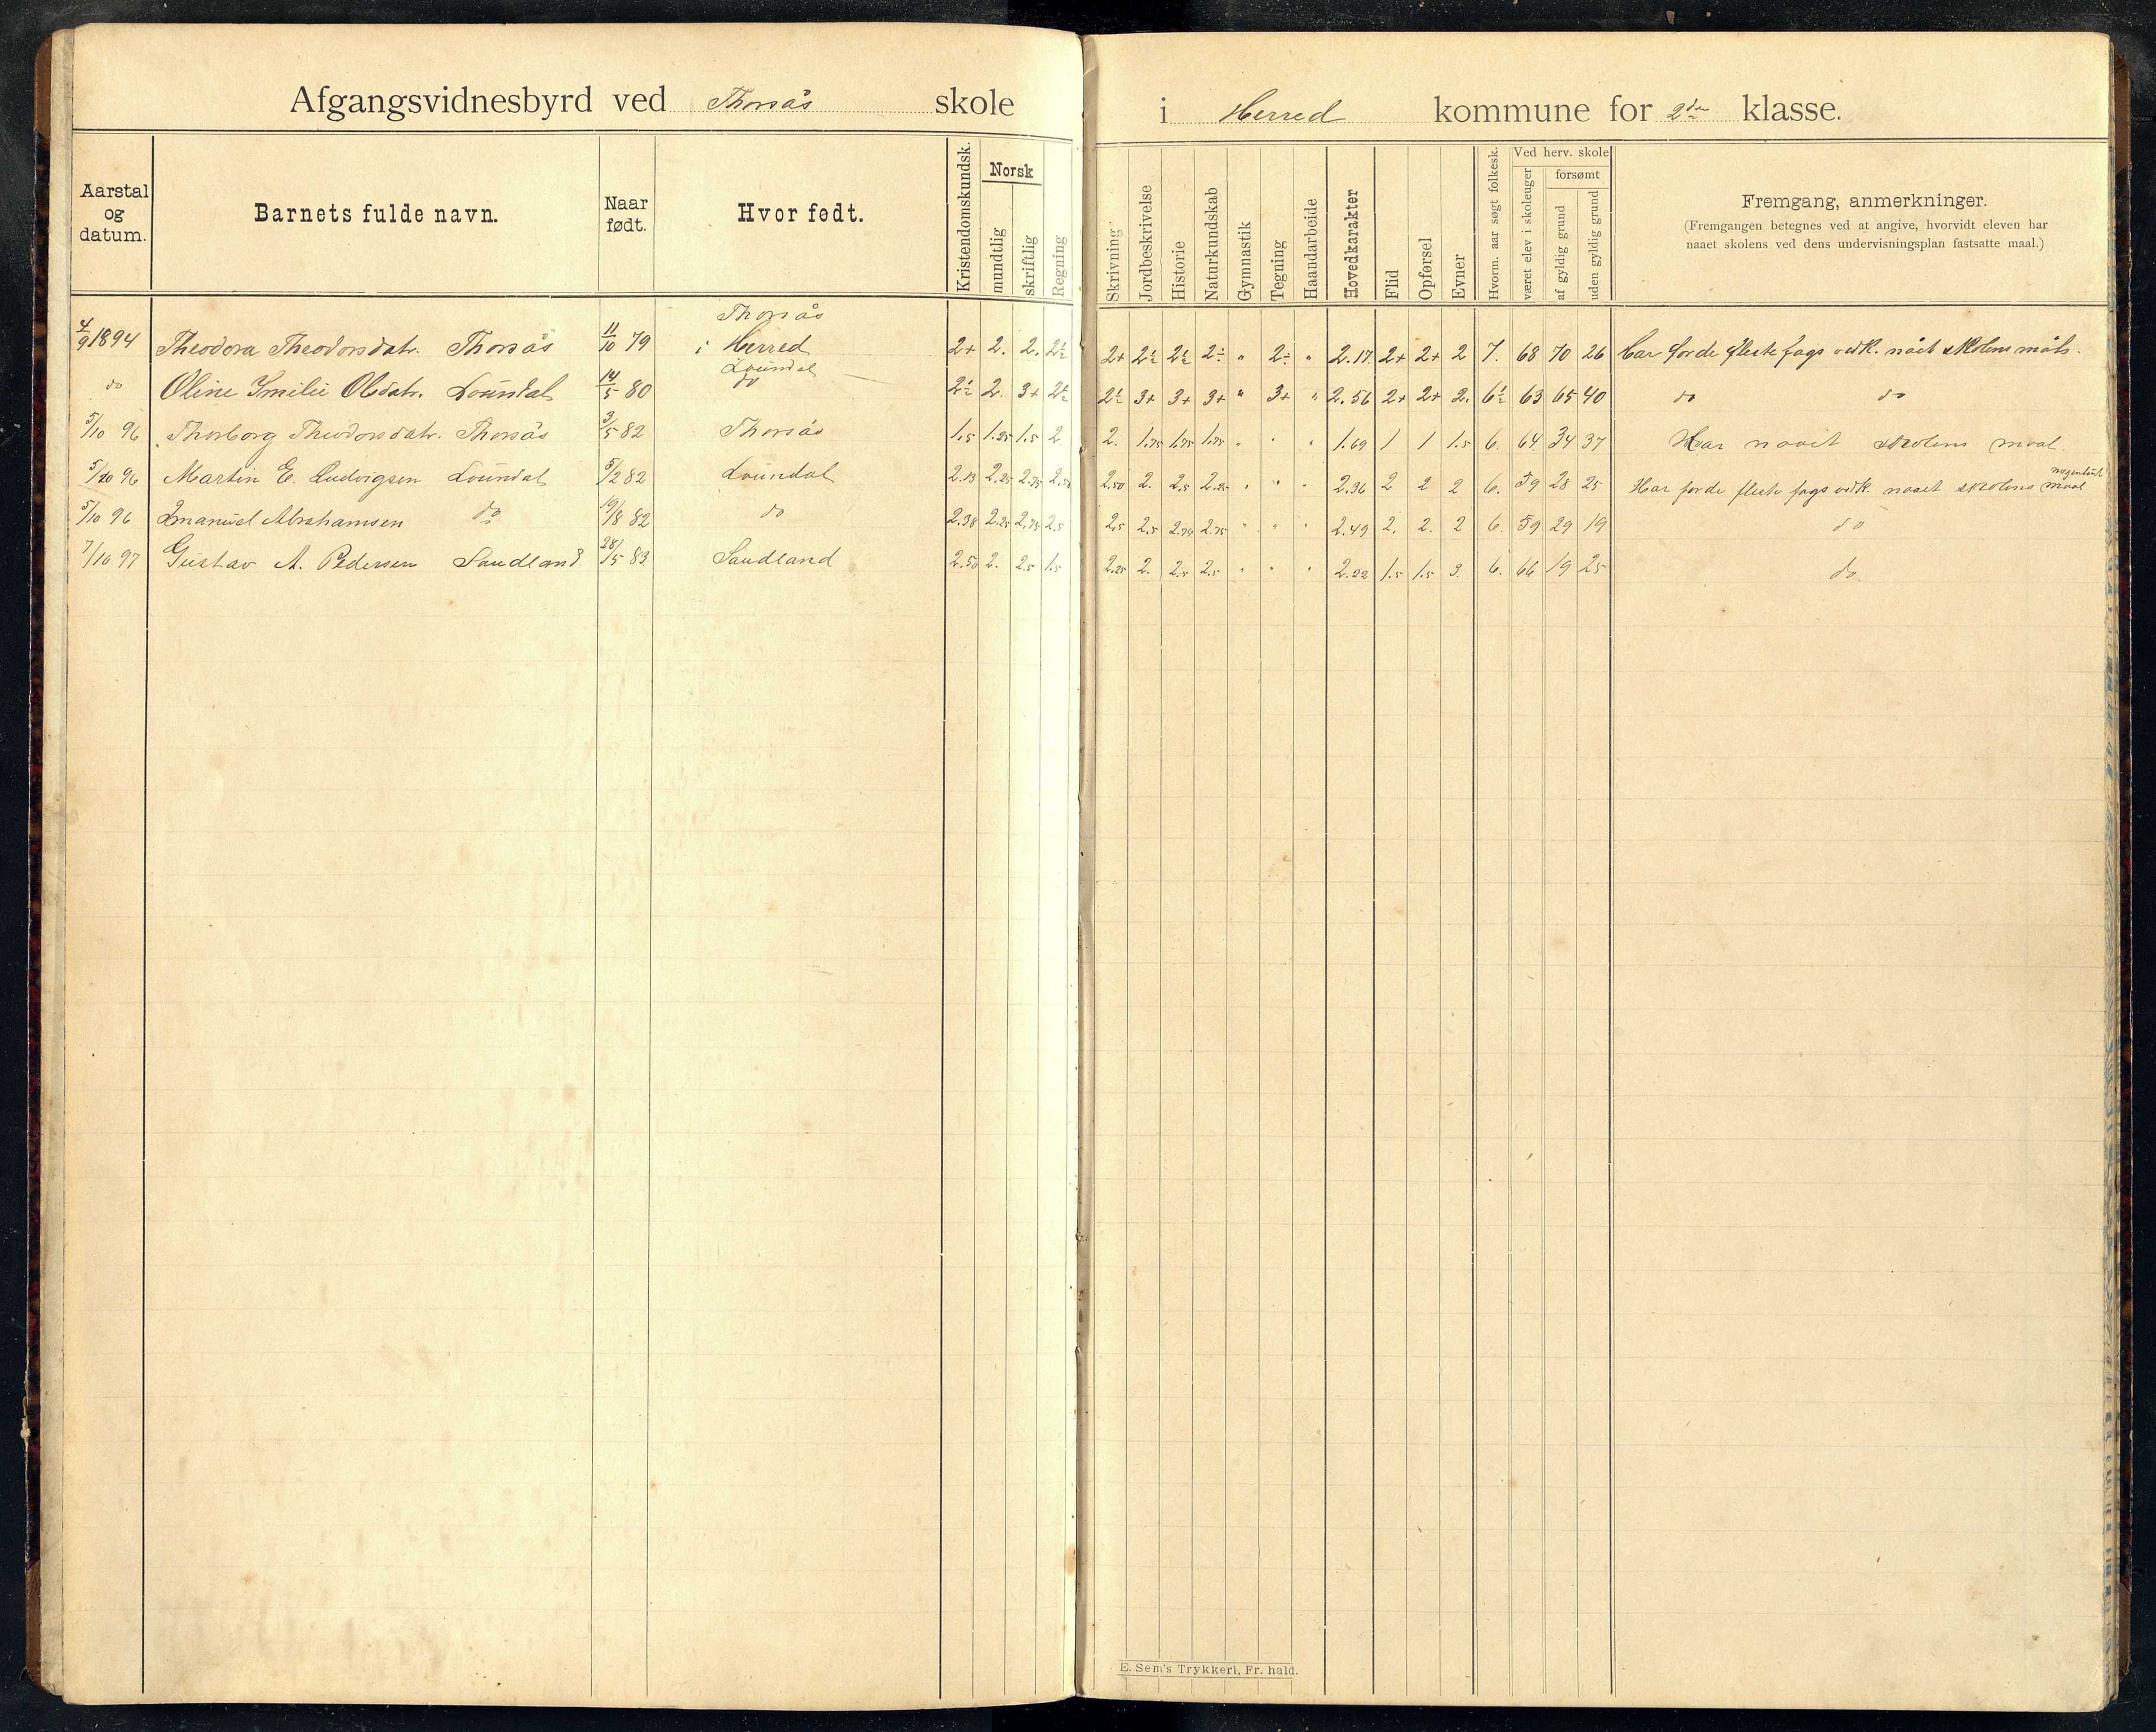 Afgangsvidnesbyrd ved Thorsås skole i Herred kommune for 2den klasse.
Aarstal og datum.
Barnets fulde navn.
Naar født.
Hvor født.
Kristendomskundsk.
Norsk
mundtlig
skriftlig
Regning
Skrivning
Jordbeskrivelse
Historie
Naturkundskab
Gymnastik
Tegning
Haandarbeide
Hovedkarakter
Flid
Opførsel
Evner
Hvorm. aar søgt folkesk.
Ved herv. skole
været elev i skoleuger
forsømt
af gyldig grund
uden gyldig grund
Fremgang, anmerkninger.
(Fremgangen betegnes ved at angive, hvorvidt eleven har
naaet skolens ved dens undervisningsplan fastsatte maal.)
Thorsås
4/9 1894 Theodora Theodorsdatr. Thorsås 11/10 79 i Herred 2+ 2. 2. 2÷ 2+ 2÷ 2÷ 2÷ " 2÷ " 2.17 2+ 2+ 2 7. 68 70 26 Har for de fleste fags vedk. nået skolens måls.
Loundal
do Oline Emilie Olsdatr. Loundal 14/5 80 do 2÷ 2. 3+ 2÷ 2÷ 3+ 3+ 3+ " 3+ " 2.56 2+ 2+ 2. 6½ 63 65 40 do do
5/10 96 Thorborg Theodorsdatr. Thorsås 3/5 82 Thorsås 1.5 1.25 1.5 2. 2. 1.75 1.75 1.75 " " " 1.69 1 1 1.5 6. 64 34 37 Har naaet skolens maal.
5/10 96 Martin E. Ludvigsen Loundal 5/2 82 Loundal 2.13 2.25 2.75 2.50 2.50 2. 2.5 2.25 " " " 2.36 2 2 2 6. 59 28 25 Har for de fleste fags vedk. naaet skolens nogenlunde maal
5/10 96 Emanuel Abrahamsen do 19/8 82 do 2.38 2.25 2.75 2.5 2.5 2.5 2.75 2.75 " " " 2.49 2. 2. 2 6. 59 29 19 do
7/10 97 Gustav A. Pedersen Sandland 28/5 83. Sandland 2.50 2. 2.5 1.5 2.25 2. 2.5 2.5 " " " 2.22 1.5 1.5 3. 6. 66 19 25 do.
E. Sem's Trykkeri, Fr. hald.